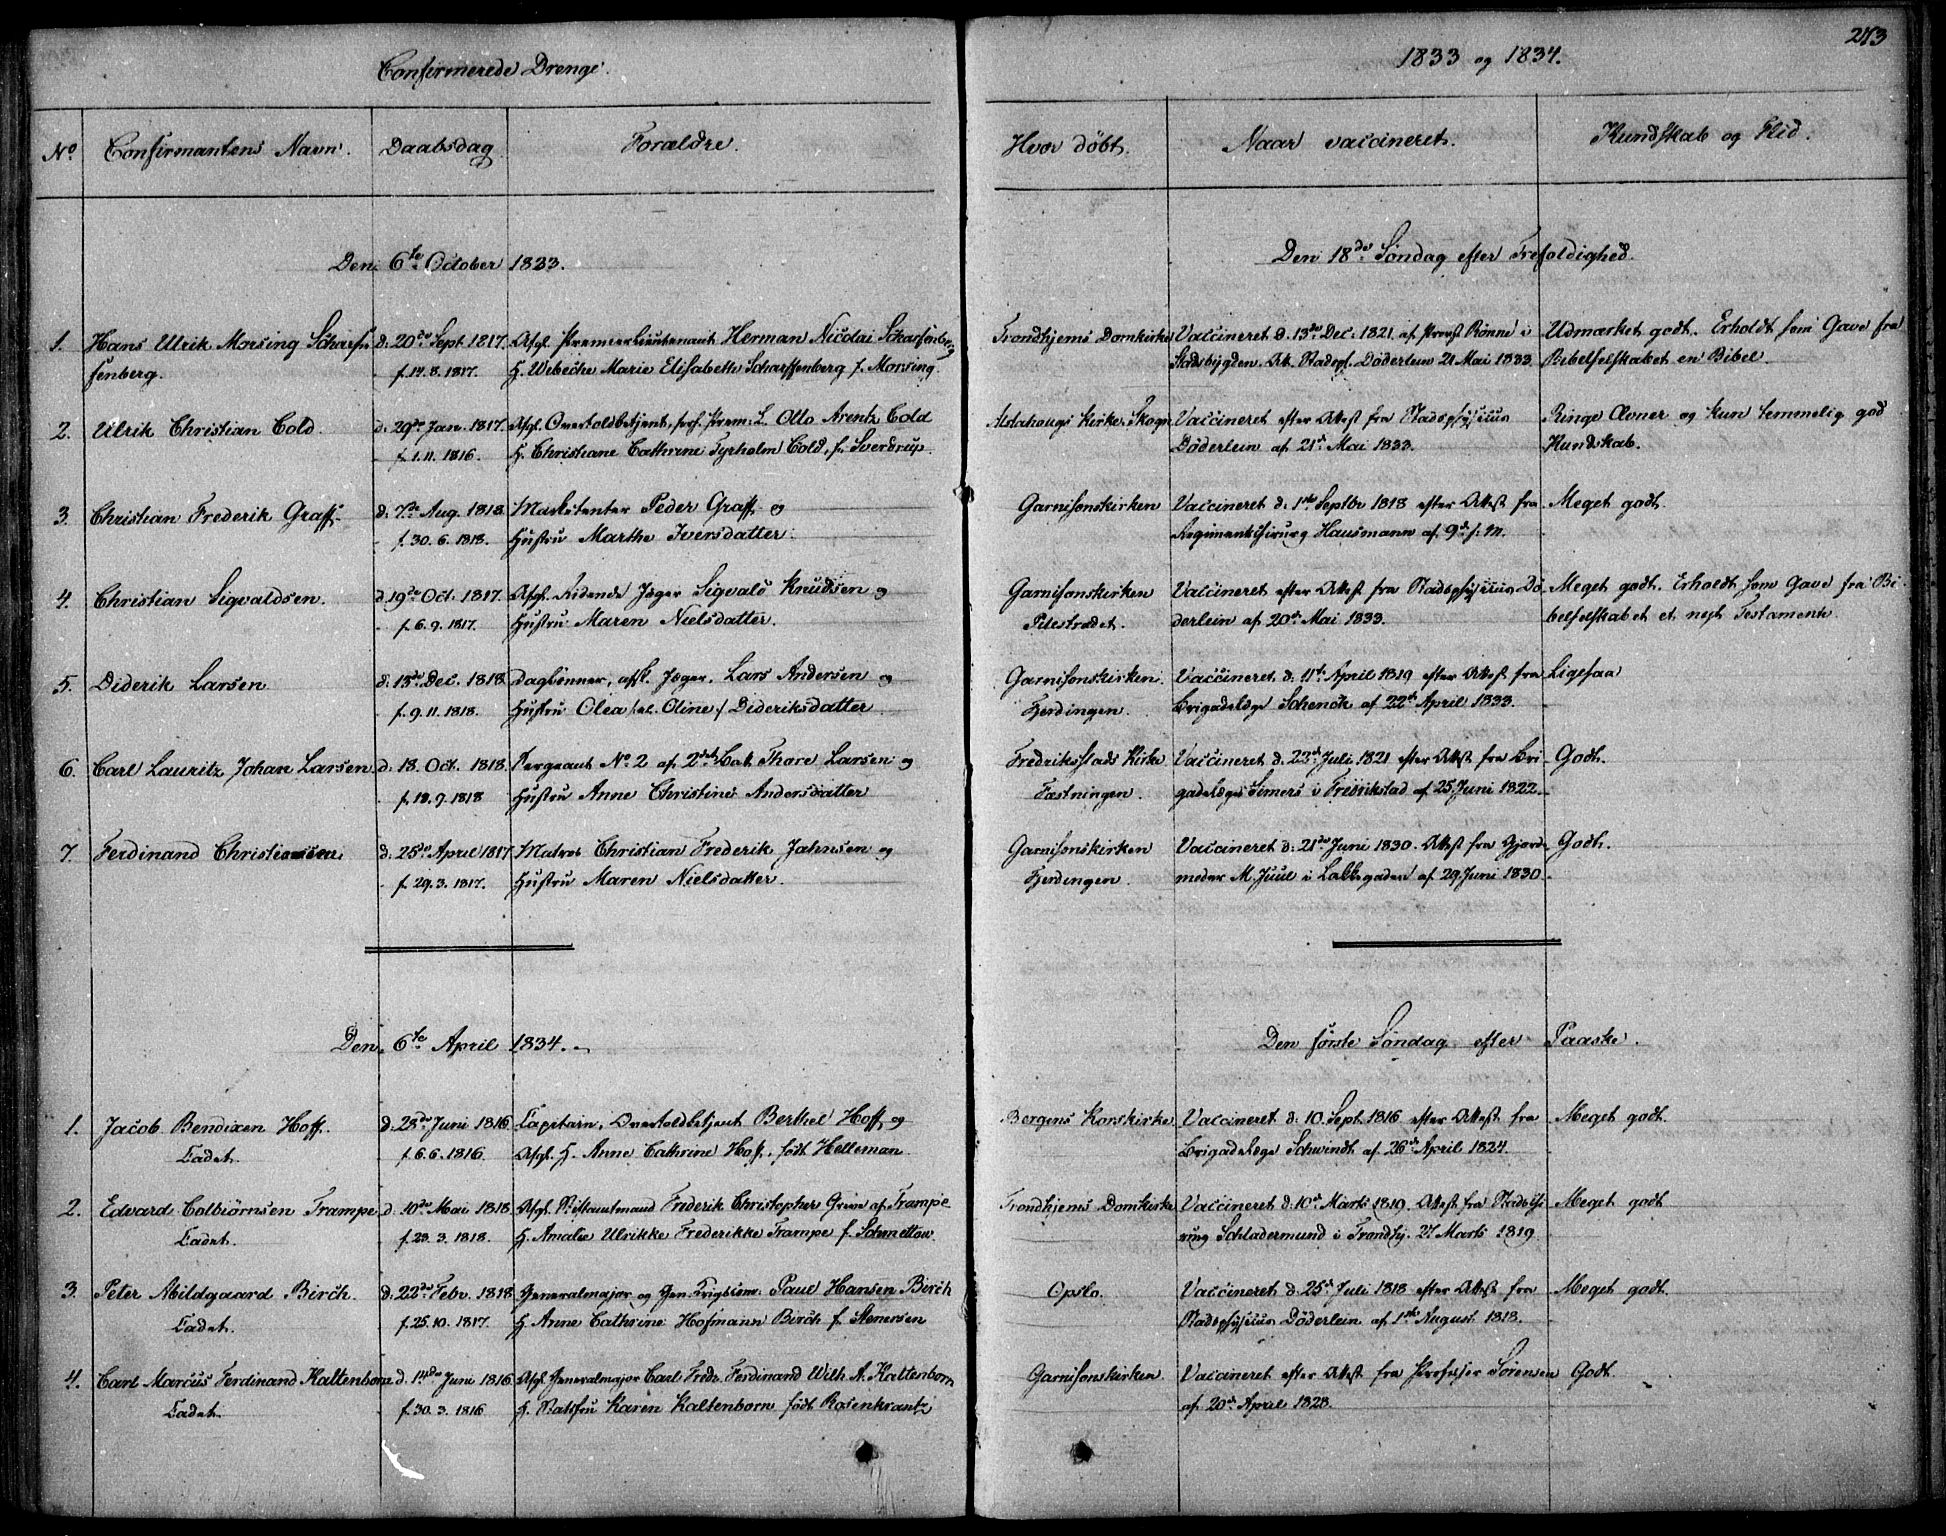 Confirmerede Drenge.
1833 og 1834.
273
No Confirmantens Navn. Daabsdag Forældre. Hvor døbt. Naar vaccineret. Kundskab og Flid.
Den 6te October 1833. Den 18de Søndag efter Trefoldighed.
1. Hans Ulrik Morsing Scharf- d. 20de Sept. 1817. Afgl. Premierlieutenant Herman Nicolai Scharfenberg Trondhjems Domkirke Vaccineret d. 13de Dec. 1821 af Provst Rønne i Udmærket godt. Erholdt som Gave fra
fenberg. f. 14.8.1817. H. Wibeche Marie Elisabeth Scharffenberg f. Morsing. Stadsbygden. Att. Stadsph. Döderlein 21 Mai 1833. Bibelselskabet en Bibel.
2. Ulrik Christian Cold. d. 29de Jan. 1817. Afgl. Overtoldbetjent, Prem. L. Otto Arentz Cold Alstahougs Kirke, Skogn Vaccineret efter Attest fra Stadsphysicus Ringe Evner og kun temmelig god
f. 1.11.1816. H. Christiane Cathrine Tyrholm Cold, f. Sverdrup. Döderlein af 21de Mai 1833. Kundskab.
3. Christian Frederik Graff. d. 7de Aug. 1818 Marketenter Peder Graff og Garnisonskirken Vaccineret d. 1ste Septbr 1818 efter Attest fra Meget godt.
f. 30.6.1818. Hustru Marthe Iversdatter. Regimentschirurg Hausmann af 9de s. M.
4. Christian Sigvaldsen. d. 19de Oct. 1817. Afgl. Ridende Jæger Sigvald Knudsen og Garnisonskirken Vaccineret efter Attest fra Stadsphysicus Dö- Meget godt. Erholdt som Gave fra Bi-
f. 6.9.1817. Hustru Maren Nielsdatter. Pilestrædet. derlein af 20de Mai 1833. belselskabet et nyt Testamente.
5. Diderik Larsen d. 13de Dec. 1818 Daglønner, afsk. Jæger, Lars Andersen og Garnisonskirken Vaccineret d. 11te April 1819 efter Attest fra Ligesaa
f. 9.11.1818. Hustru Olea /:al. Oline:/ Dideriksdatter Fjerdingen. Brigadelæge Schenck af 22de April 1833.
6. Carl Lauritz Johan Larsen d. 18. Oct. 1818. Sergeant No 2 af 2det Bat. Thore Larsen og Fredriksstads Kirke Vaccineret d. 23de Juli 1821 efter Attest fra Bri- Godt.
f. 18.9.1818 Hustru Anne Christine Andersdatter Fæstningen. gadelæge Simers i Fredrikstad af 25 Juni 1822.
7. Ferdinand Christiansen d. 25de April 1817 Matros Christian Frederik Jahnsen og Garnisonskirken Vaccineret d. 21de Juni 1830. Attest fra Gjorde- Godt.
f. 29.3.1817. Hustru Maren Nielsdatter. Fjerdingen. moder M. Juul i Lakkegaden af 29. Juni 1830.
Den 6te April 1834. Den første Søndag efter Paaske.
1. Jacob Bendixen Hoff. d. 28de Juni 1816 Capitain, Overtoldbetjent Berthel Hoff og Bergens Korskirke Vaccineret d. 10. Sept. 1816 efter Attest fra Meget godt.
Cadet. f. 6.6.1816. Afgl. H. Anne Cathrine Hoff, født Helleman Brigadelæge Schwindt af 26de April 1824.
2. Edvard Colbiørnsen Trampe d. 10de Mai 1818 Afgl. Stiftamtmand Frederik Christopher Greve af Trampe Trondhjems Domkirke Vaccineret d. 10de Marts 1819. Attest fra Stadschi- Meget godt
Cadet. f. 23.3.1818. H. Amalie Ulrikke Frederikke Trampe f. Schmettow. rurg Schladermund i Trondhj. 27 Marts 1819
3. Peter Abildgaard Birch. d. 22de Febr. 1818 Generalmajor og Gen. Krigscom. Paul Hansen Birch Opslo. Vaccineret d. 25de Juli 1818 efter Attest fra Meget godt.
Cadet. f. 25.10.1817. H. Anne Cathrine Hofmann Birch f. Stenersen Stadsphysicus Döderlein af 1ste August 1818.
4. Carl Marcus Ferdinand Kaltenborn d. 14de Juni 1816. Afgl. Generalmajor Carl Fredr. Ferdinand Wilh. A. Kaltenborn Garnisonskirken. Vaccineret efter Attest fra Professor Sørensen Godt.
Cadet. f. 30.3.1816 H. Statsfru Karen Kaltenborn født Rosenkrantz af 20de April 1828.